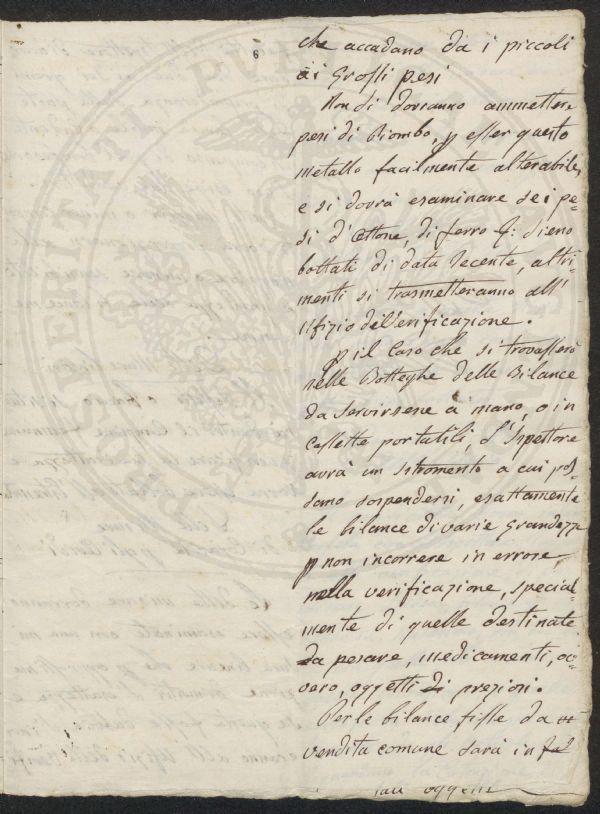 6
che accadano da i piccoli
ai Grossi pesi
Non di dovranno ammettere
pesi di Piombo, p esser questo
metallo facilmente alterabile,
e si dovrà esaminare se i pe-
si d'Ottone, di ferro &: sieno
bottati di data recente, altri-
menti si trasmetteranno all'
Ufizio del Verificazione.
p il Caso che si trovassero
nelle Botteghe delle Bilance
da servirsene a mano, o in
Cassette portatili, l'Ispettore
avrà un istromento a cui pos-
sano sospendersi, esattamente
le bilance di varie Grandezze
p non incorrere in errore
nella verificazione, special-
mente di quelle destinate
da pesare, medicamenti, ov-
vero, oggetti di preziosi.
Per le bilance fisse da
vendita comune sarà in
tali oggetti